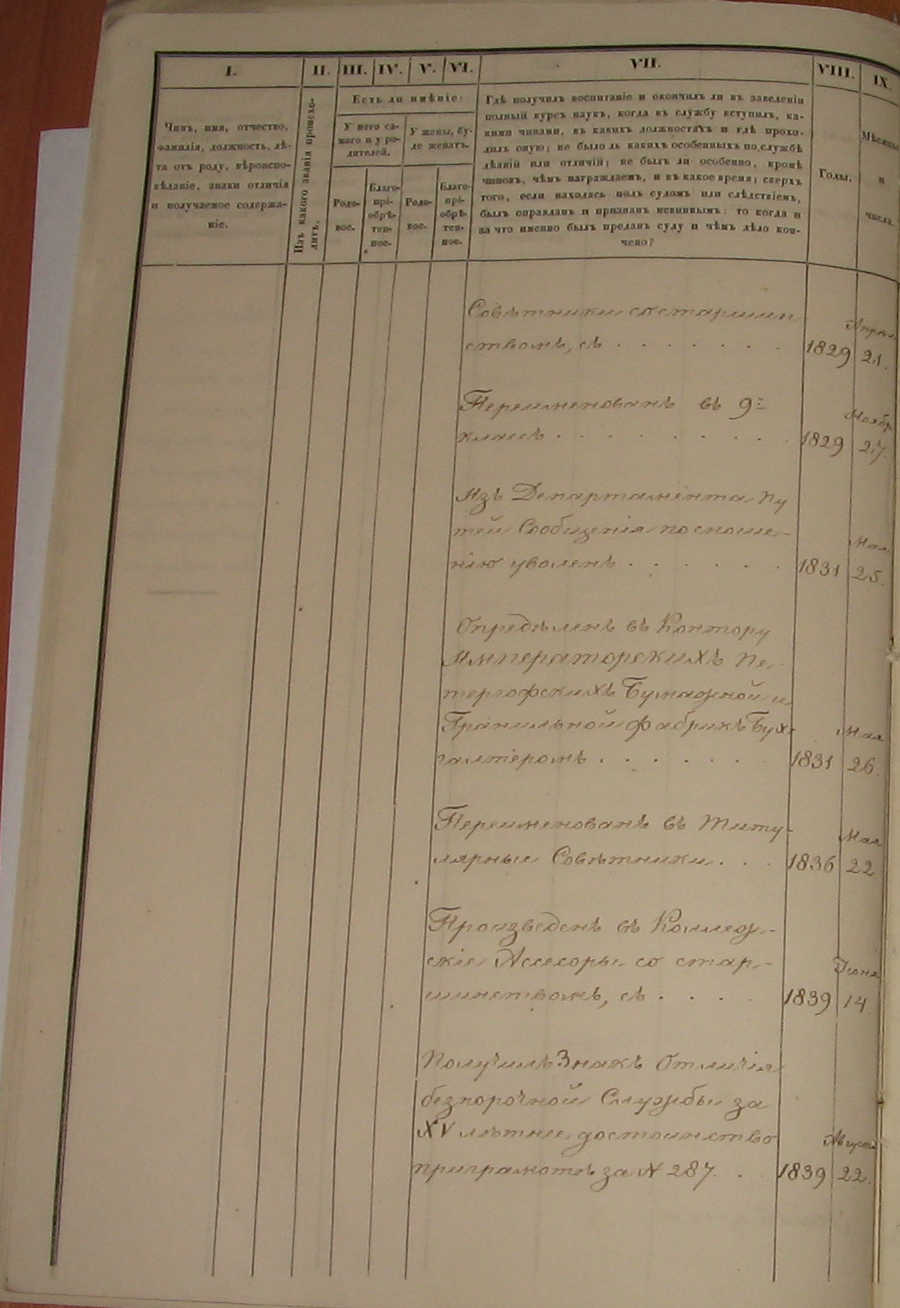 I.
II.
III.
IV.
V.
VI.
VII.
VIII.
IX.
Чинъ, имя, отчество,
фамилія, должность, лѣ-
та отъ роду, вѣроиспо-
вѣданіе, знаки отличія
и получаемое содержа-
ніе.
Изъ какого званія происхо-
дитъ.
Есть ли имѣніе:
У него са-
маго и у ро-
дителей.
У жены, бу-
де женатъ.
Родо-
вое.
Благо-
прі-
обрѣ-
тен-
ное.
Родо-
вое.
Благо-
прі-
обрѣ-
тен-
ное.
Гдѣ получилъ воспитаніе и окончилъ ли въ заведеніи
полный курсъ наукъ, когда въ службу вступилъ, ка-
кими чинами, въ какихъ должностяхъ и гдѣ прохо-
дилъ оную; не было ль какихъ особенныхъ по службѣ
дѣяній или отличій; не былъ ли особенно, кромѣ
чиновъ, чѣмъ награждаемъ, и въ какое время; сверхъ
того, если находясь подъ судомъ или слѣдствіемъ,
былъ оправданъ и признанъ невиннымъ: то когда и
за что именно былъ преданъ суду и чѣмъ дѣло кон-
чено?
Годы.
Мѣсяцы
и
числа.
Совѣтники со старшин
ствомъ, съ . . . . . . . 1829 Апрѣл. 21.
Переименованъ въ 9й
классъ . . . . . . . . . 1829 Ноябр. 27.
Изъ Департамента Пу
тей Сообщенія по сноше-
нію уволенъ . . . . . . 1831 Мая 25.
Опредѣленъ въ Контору
Императорскихъ Пе-
тергофскихъ Бумажной и
Гранильной фабрикъ Бух-
галтеромъ . . . . . . . 1831 Мая 26.
Переименованъ въ Титу-
лярные Совѣтники . . . 1836 Мая 22
Произведенъ въ Коллеж-
скіе Ассесоры со стар-
шинствомъ, съ . . . . 1839 Іюня 14
Получилъ Знакъ Отличія
безпорочной Службы за
XV лѣтнее достоинство
при грамотѣ за N 287. . . 1839 Август. 22.